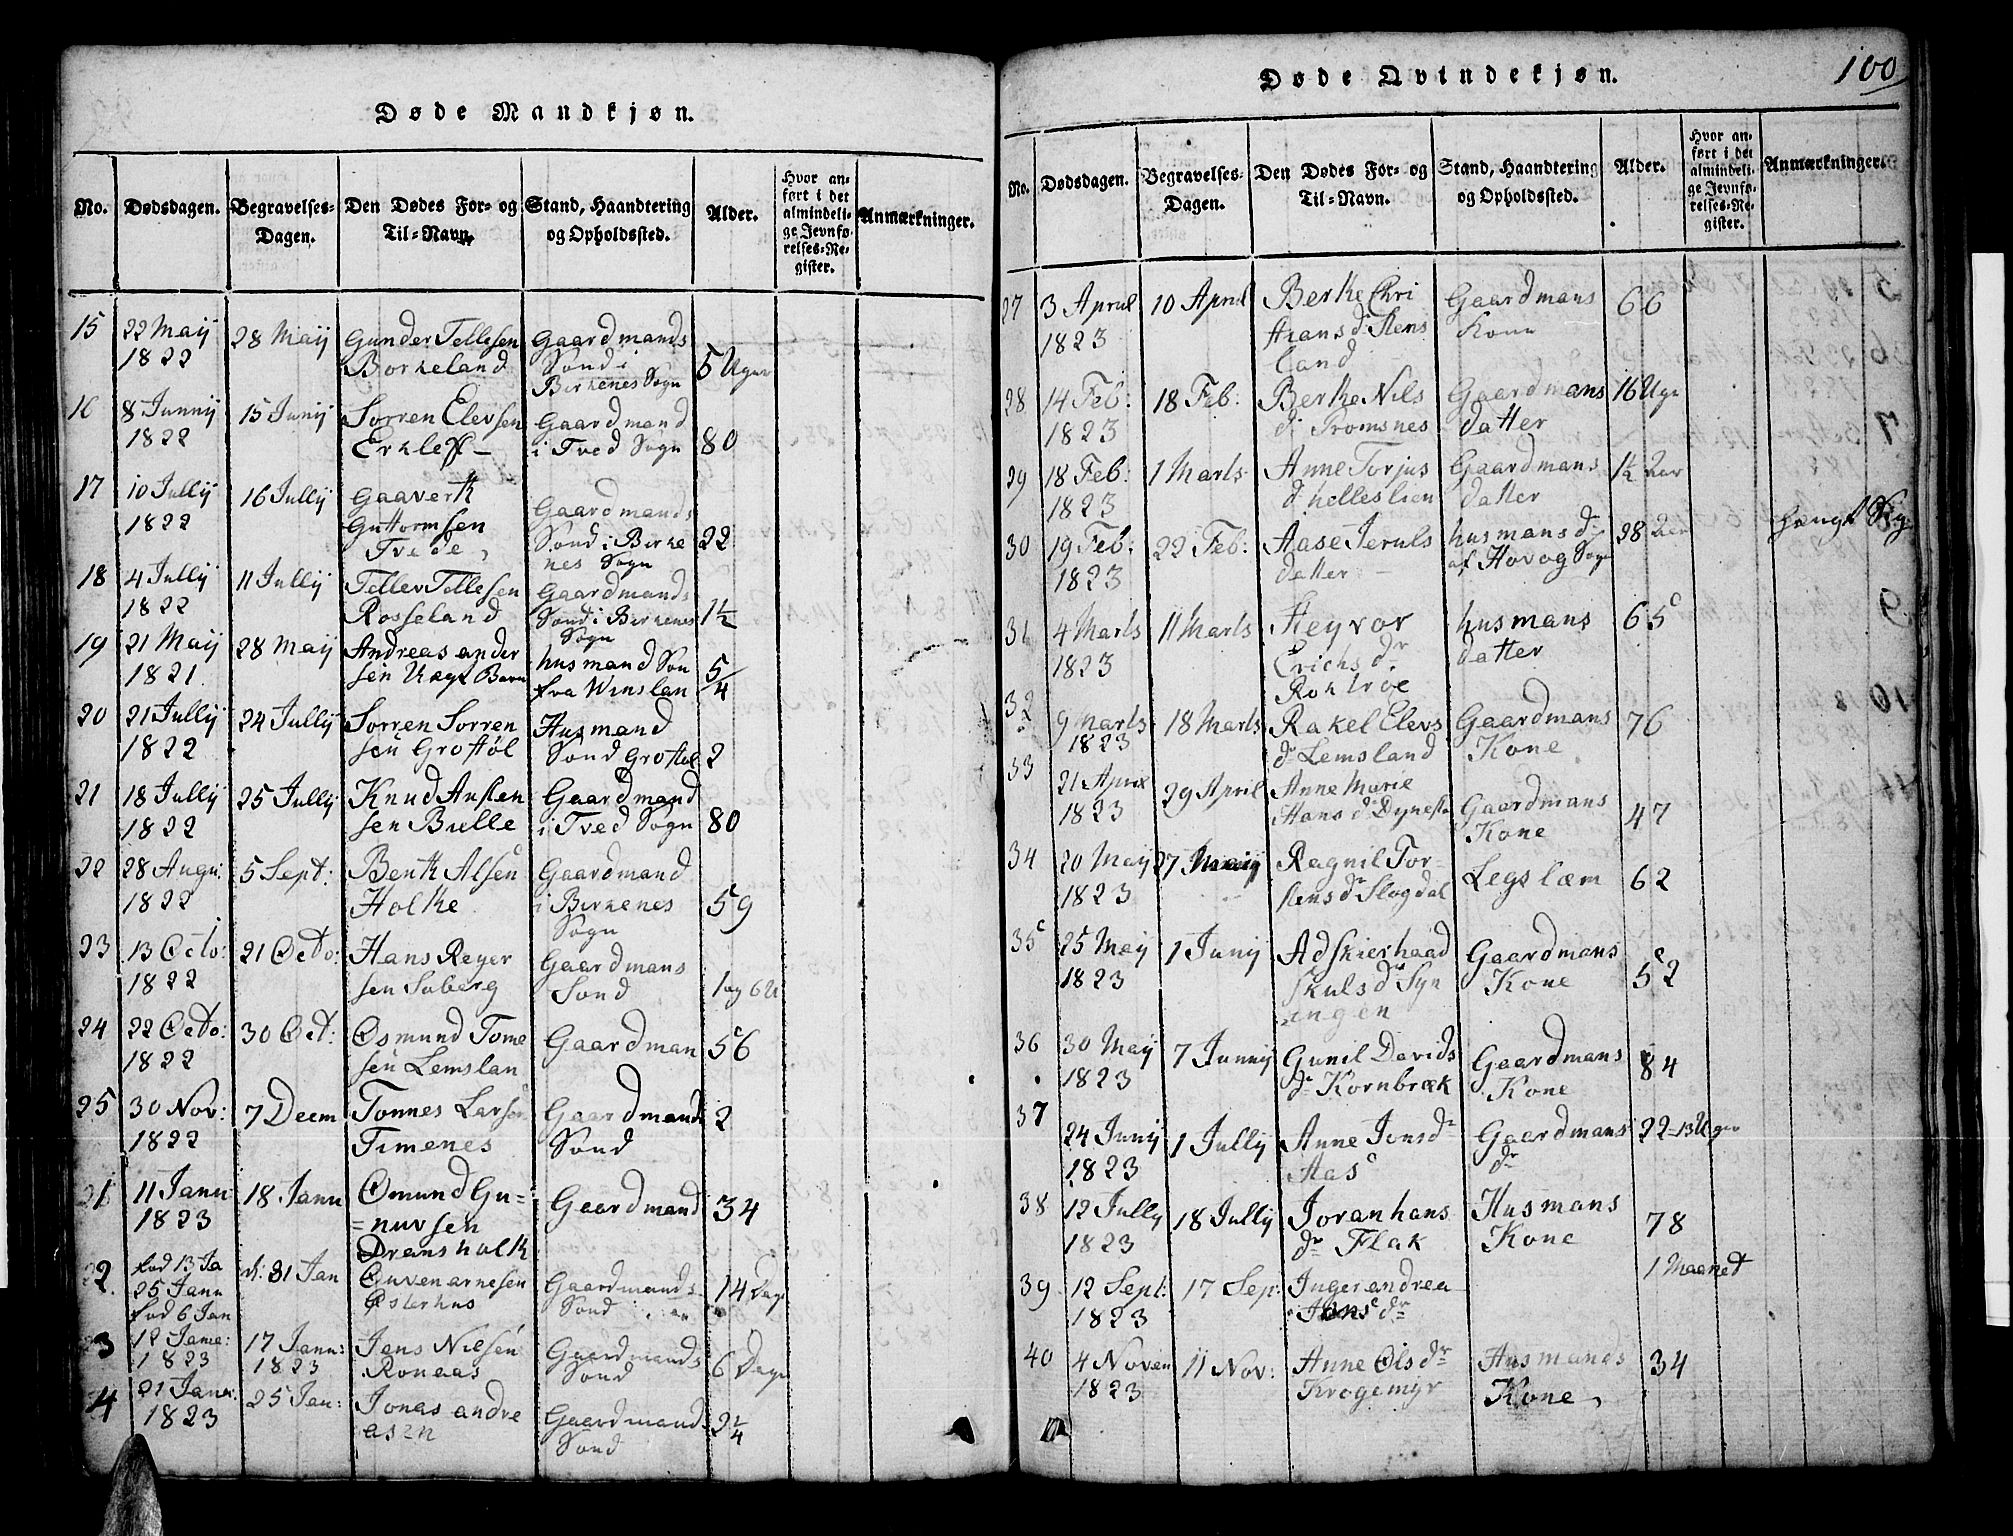 Døde Mandkjøn.
No. Dødsdagen. Begravelses-Dagen. Den Dødes For- og Til-Navn. Stand, Haandtering og Opholdssted. Alder. Hvor anført i det almindelige Jevnførelses-Register. Anmærkninger.
15 22 Maij 28 Maij Gunder Tellesen Gaardmands
1822 Borkeland Sond i 5 Uger
Birkenes Sogn
16 8 Junnij 15 Junij Sorren Elevsen Gaardmand
1822 i Tved Sogn 80
17 10 Jullij 16 Jullij Gaaverth Gaardmands
1822 Guttormsen Sond i Birke 22
Tvede nes Sogn
18 4 Jullij 11 Jullij Tellev Tellesen Gaardmands
1822 Rosseland Sond i Birkenes 1½
Sogn
19 21 Maij 28 Maij Andreas ander husmand Son 5/4
1821 sen Uægt Barn fra Winslan
20 21 Jullij 24 Jullij Sorren Sorren Husmand
1822 sen Groftøl Sond Groftøl 2
21 18 Jullij 25 Jullij Knud Austen Gaardmand
1822 sen Bielle i Tved Sogn 80
22 28 Augu: 5 Sept: Benth Alsen Gaardmand
1822 Holte i Birkenes 59
Sogn
23 13 Octo: 21 Octo: Hans Reyer Gaardmans
1822 sen Soberg Sond 1 og 6 U
24 22 Octo: 30 Oct: Osmund Tome Gaardman 56
1822 sen Lemslan
25 30 Nov: 7 Deem Tonnes Larsen Gaardmand 2
1822 Timenes Sond
21 11 Janu 18 Janu Omund Gu= Gaardmand 34
1823 =nuvsen
Dræsholt
22. fod 13 Ja d: 31 Jan Guvenarnesen Gaardmands 14 Dage
25 Janu Osterhus Sond
fod 6 Jan
23 12 Jane: 17 Janu: Jens Nielsen Gaardmands 6 Dage
1823 1823 Ronaas Sond
4 21 Janu: 25 Jan: Jonas andre Gaardmand 2¼
1823 asen Sond
Døde Qvindekjøn. 100
No. Dødsdagen. Begravelses-Dagen. Den Dødes For- og Til-Navn. Stand, Haandtering og Opholdssted. Alder. Hvor anført i det almindelige Jevnførelses-Register. Anmærkninger.
27 3 Aprul 10 April Berthe Chri Gaardmans 66
1823 stians d: Stens Kone
land
28 14 Feb: 18 Feb: Berthe Nils Gaardmans 16 Uge
1823 d: Tromsnes datter
29 18 Feb: 1 Marts Anne Torjus Gaardmans 1½ Aar
1823 d: helleslien datter
30 19 Feb: 22 Feb: Aase Jeruls husmans dr 28 Aar hængt Sig
1823 datter af Hovog Sogn
31 4 Marts 11 Marts Steyvor husmans 65
1823 Erichs dr datter
32 9 Marts 18 Marts Rakel Elevs Gaardmans 76
1823 dr Lemsland Kone
33 21 April 29 April Anne Marie Gaardmans 47
1823 Hans dr Dynestø Kone
34 20 Maij 27 Maij Ragnil Tor- Legslæm 62
1823 stens dr Slogdal
35 25 Maij 1 Junij Adskierhaad Gaardmans 52
1823 skuls dr Syn Kone
angen
36 30 Maij 7 Junnij Gunil Davids Gaardmans 84
1823 dr Kornbræk Kone
37 24 Junij 1 Jullij Anne Jons dr Gaardmans 22-13 Uger
1823 Aas dr
38 12 Jully 18 Jullij Joran hans Husmans 78
1823 dr Flak Kone
39 12 Sept: 17 Sep: Inger andrea 1 Maanet
1823 Jens dr
40 4 Noven 11 Nov: Anne Ols dr Husmands 34
1823 Krogemyr Kone